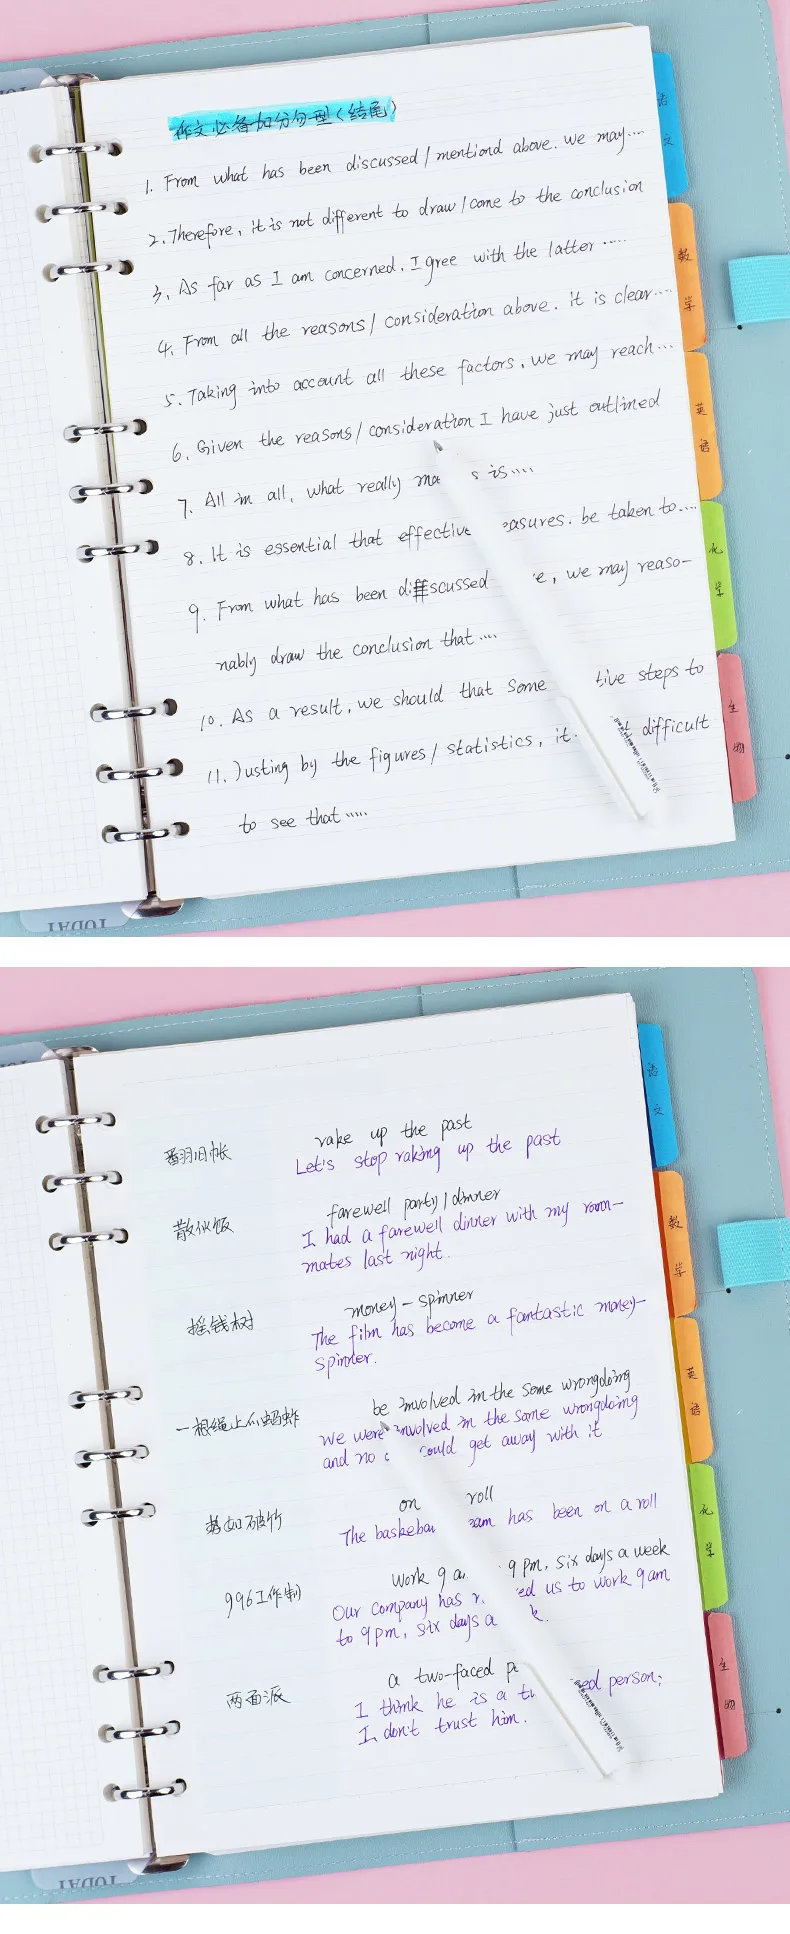 作文必备加分句型(结尾)
1. From what has been discussed/mentiond above. we may....
2. Therefore, it is not different to draw/come to the conclusion
3. As far as I am concerned. I gree with the latter .....
4. From all the reasons/consideration above. it is clear....
5. Taking into account all these factors, we may reach...
6. Given the reasons/consideration I have just outlined
7. All in all, what really ma s is....
8. It is essential that effective easures. be taken to....
9. From what has been discussed e, we may reaso-
nably draw the conclusion that ....
10. As a result, we should that some tive steps to
11. Justing by the figures/statistics, it difficult
to see that .....
语文
数学
英语
化学
生物
TODAY
翻旧帐
rake up the past
Let's stop raking up the past
散伙饭
farewell party/dinner
I had a farewell dinner with my room-
mates last night.
摇钱树
money-spinner
The film has become a fantastic money-
spinner.
一根绳上的蚂蚱
be involved in the same wrongdoing
We were involved in the same wrongdoing
and no could get away with it
势如破竹
on roll
The baskeba eam has been on a roll
996工作制
work 9 a 9 pm, six days a week
Our company has r ed us to work 9am
to 9pm, six days a k.
两面派
a two-faced pe
I think he is a tw ed person;
I don't trust him.
语文
数学
英语
化学
生物
TODAY